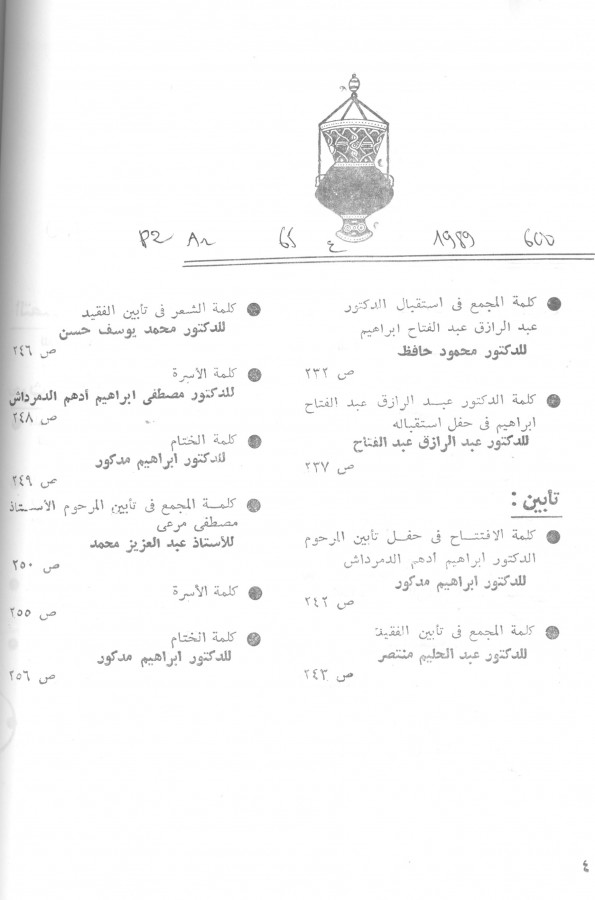 P2 Ar 65 ع 1989 600
كلمة المجمع فى استقبال الدكتور
عبد الرازق عبد الفتاح ابراهيم
للدكتور محمود حافظ
ص ٢٣٢
كلمة الدكتور عبد الرازق عبد الفتاح
ابراهيم فى حفل استقباله
للدكتور عبد الرازق عبد الفتاح
ص ٢٣٧
تأبين :
كلمة الافتتاح فى حفل تأبين المرحوم
الدكتور ابراهيم أدهم الدمرداش
للدكتور ابراهيم مدكور
ص ٢٤٢
كلمة المجمع فى تأبين الفقيد
للدكتور عبد الحليم منتصر
ص ٢٤٣
كلمة الشعر فى تأبين الفقيد
للدكتور محمد يوسف حسن
ص ٢٤٦
كلمة الأسرة
للدكتور مصطفى ابراهيم أدهم الدمرداش
ص ٢٤٨
كلمة الختام
للدكتور ابراهيم مدكور
ص ٢٤٩
كلمة المجمع فى تأبين المرحوم الأستاذ
مصطفى مرعى
للأستاذ عبد العزيز محمد
ص ٢٥٠
كلمة الأسرة
ص ٢٥٥
كلمة الختام
للدكتور ابراهيم مدكور
ص ٢٥٦
٤